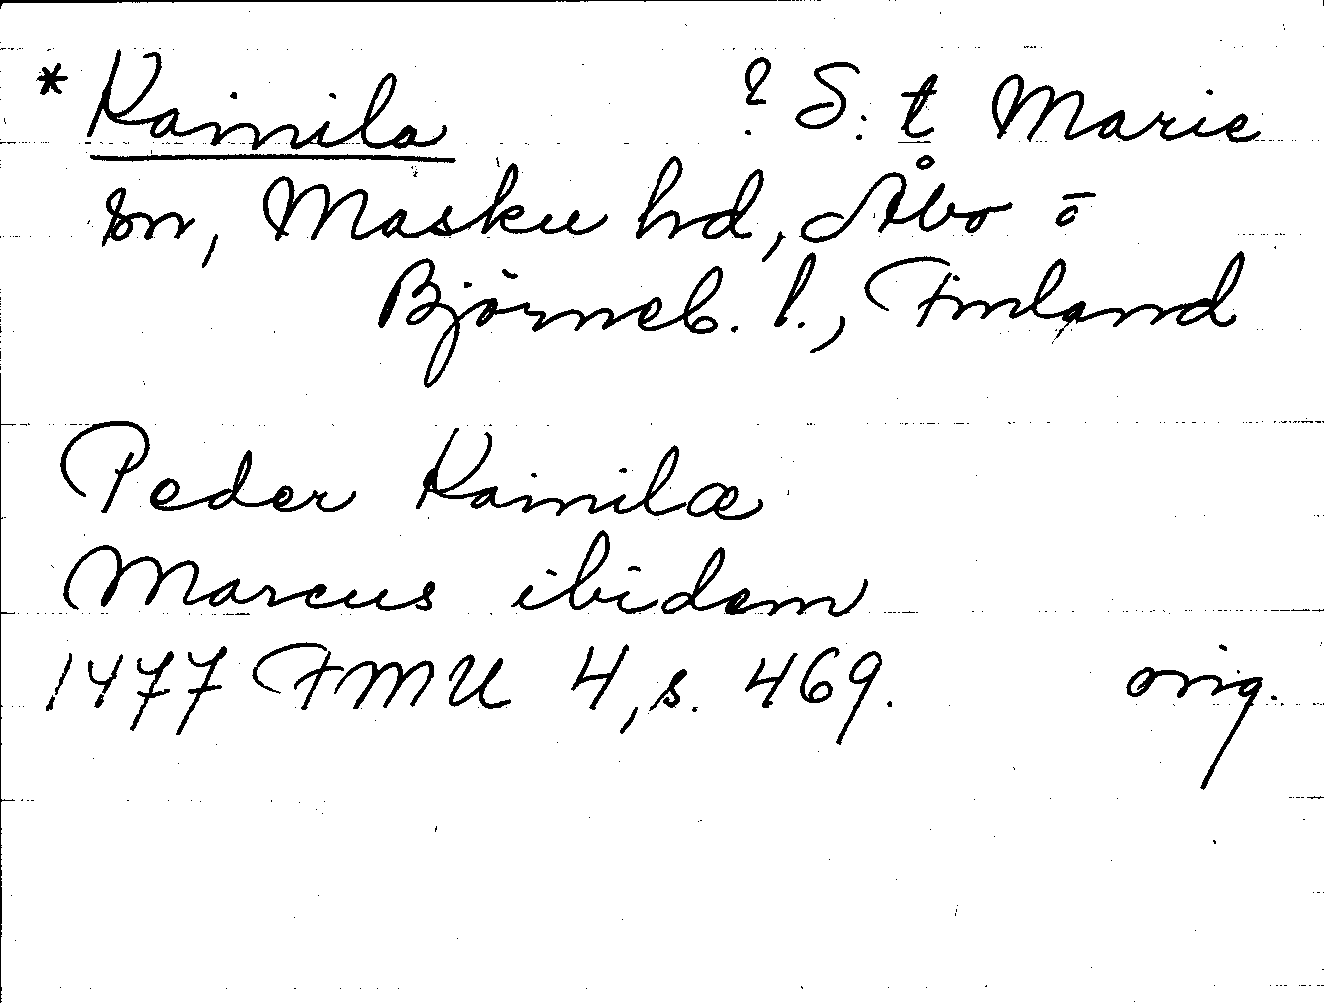 * Kaimila ? S:t Marie
sn, Masku hd, Åbo o
Björneb. l., Finland
Peder Kaimilæ
Marcus ibidem
1477 FMU 4, s. 469. orig.